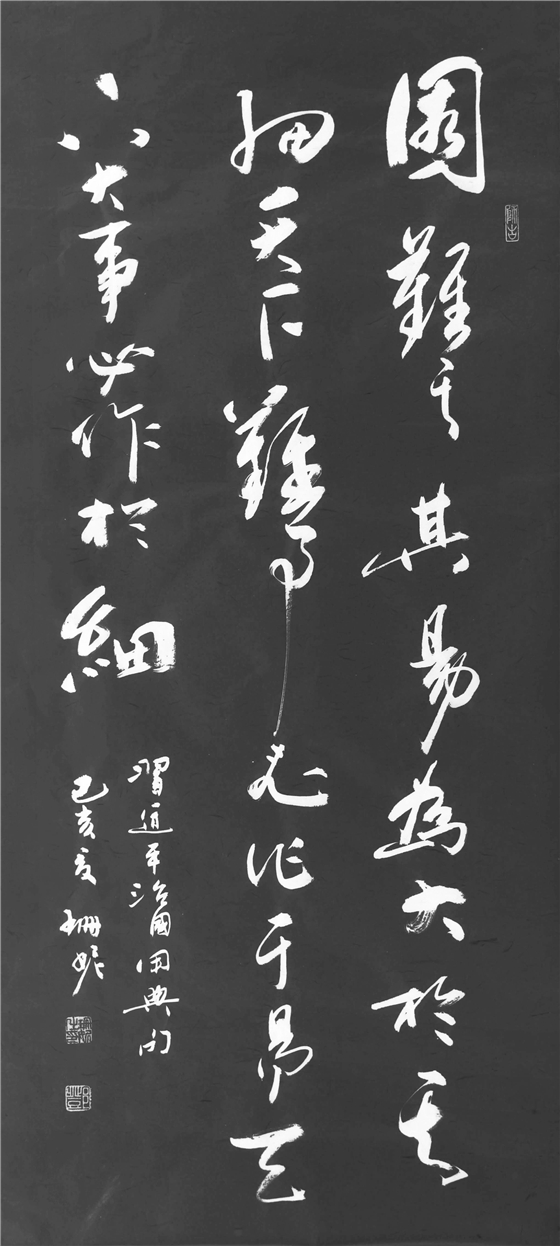 圖難其易為大於其
細天下難事必作于易天
下大事必作於細
習近平治國用典句
己亥夏珊妮